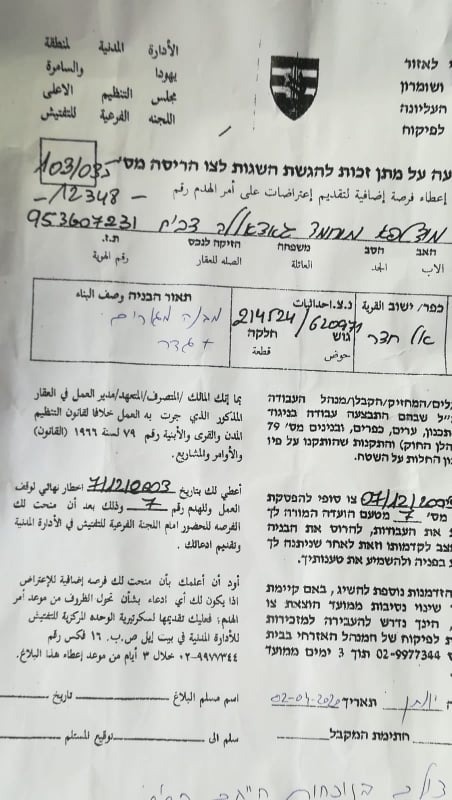 الأدارة المدنية لمنطقة
يهودا والسامرة
مجلس التنظيم الاعلى
اللجنه الفرعية للتفتيش
י לאזור
ושומרון
העליונה
לפיקוח
עה על מתן זכות להגשת השגות לצו הריסה מס' 103/035
إعطاء فرصة إضافية لتقديم إعتراضات على أمر الهدم رقم - 12348 -
953607231
האב הסב משפחה הזיקה לנכס ת.ז.
الاب الجد العائلة الصله للعقار رقم الهوية
כפר/ ישוב القرية
אל חדר
נ.צ. احداثيات
214524 / 620971
גוש חלקה
حوض قطعة
תאור הבניה وصف البناء
מבנה מגורים
+ גדר
עלים/המחזיק/הקבלן/מנהל העבודה
"ל שבהם התבצעה עבודה בניגוד
תכנון, ערים, כפרים, ובנינים מס' 79
הלן החוק) והתקנות שהותקנו על פיו
ון החלות על השטח.
بما إنك المالك /المتصرف/المتعهد/مدير العمل في العقار
المذكور الذي جرت به العمل خلافا لقانون التنظيم
المدن والقرى والأبنية رقم ٧٩ لسنة ١٩٦٦ (القانون)
والأوامر والمشاريع.
צו סופי להפסקת
מס' 7 מטעם הועדה המורה לך
את העבודות, להרוס את הבניה
צב לקדמותו וזאת לאחר שניתנה לך
בפניה ולהשמיע את טענותיך.
أعطي لك بتاريخ 7/12/2003 اخطار نهائي لوقف
العمل وللهدم رقم 7 وذلك بعد أن منحت لك
الفرصه للحضور امام اللجنة الفرعية للتفتيش في الأدارة المدنية
وتقديم ادعائك.
הזדמנות נוספת להשיג, באם קיימת
שינוי נסיבות ממועד הוצאת צו
, הינך נדרש להעבירה למזכירות
ת לפיקוח של המנהל האזרחי בבית
02-9977344 תוך 3 ימים ממועד
أود أن أعلمك بأن منحت لك فرصه إضافية للإعتراض
اذا يكون لك أي ادعاء بشأن تحول الظروف من موعد أمر
الهدم؛ فعليك تقديمها لسكرتيرية الوحده المركزية للتفتيش
للأدارة المدنية في بيت إيل ص.ب. ١٦ فكس رقم
٠٢-٩٩٧٧٣٤٤ خلال ٣ أيام من موعد إعطاء هذا البلاغ.
תאריך
اسم مسلم البلاغ تاريخ
חתימת המקבל
سلم الى توقيع المستلم